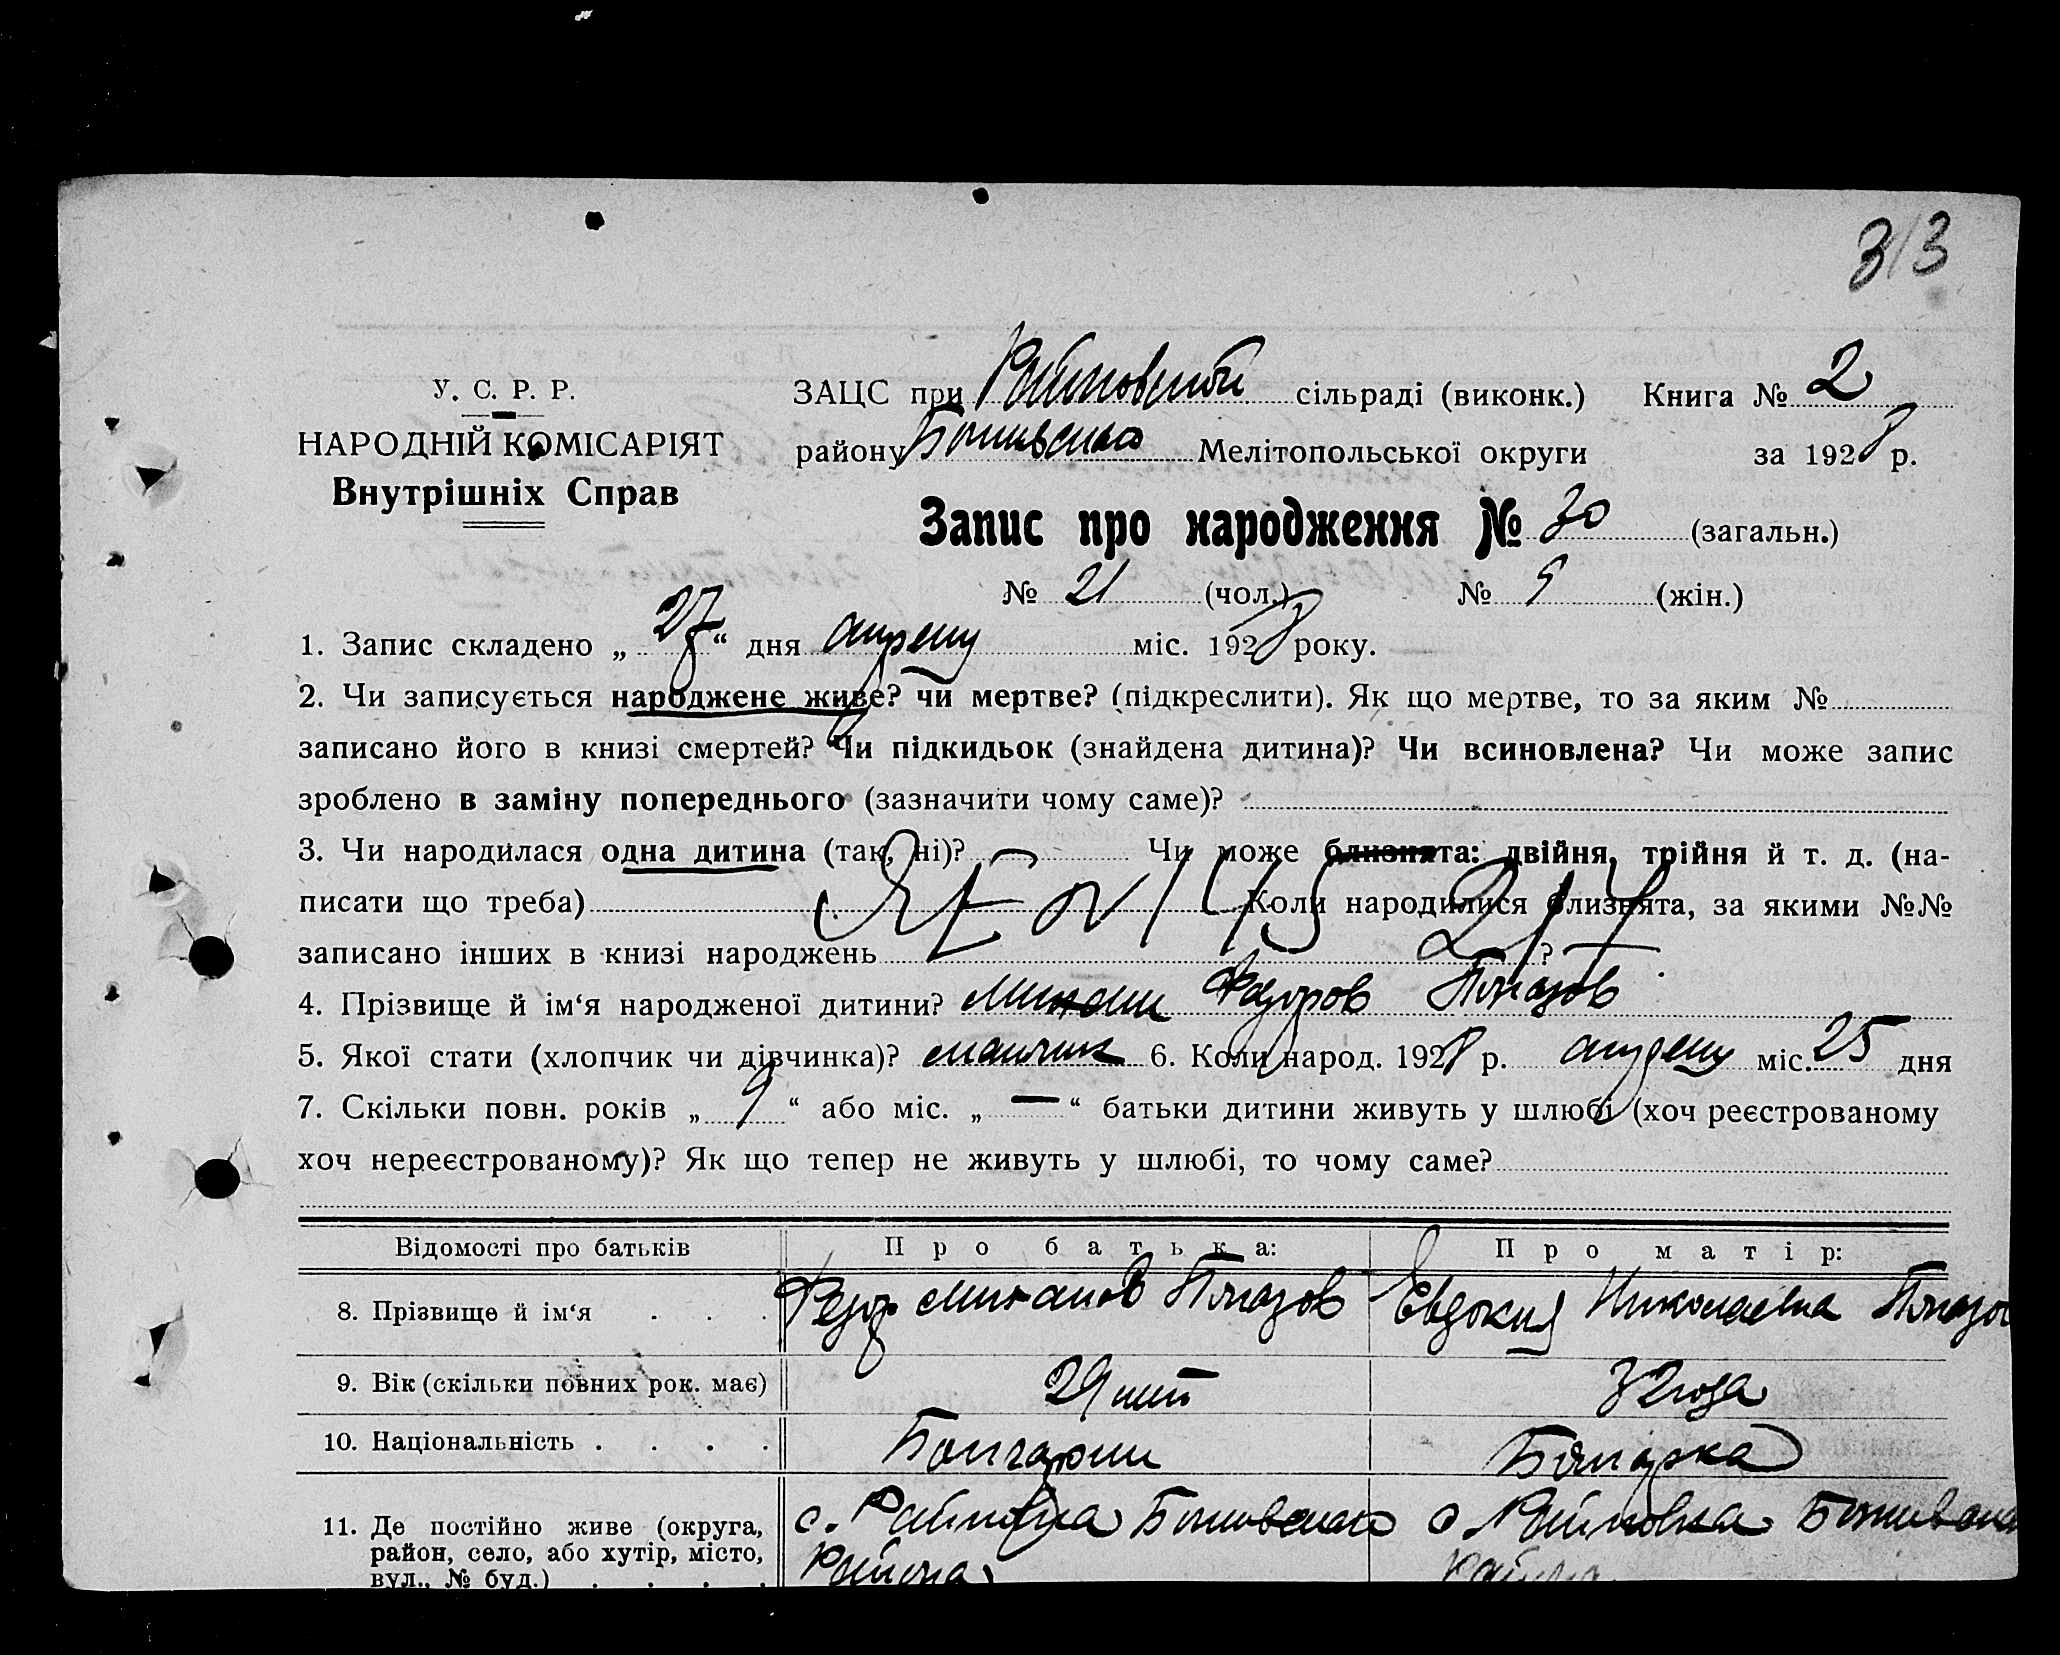 313
У. С. Р. Р.
НАРОДНІЙ КОМІСАРІЯТ
Внутрішніх Справ
ЗАЦС при Райновский сільраді (виконк.) Книга № 2
району Ботиевского Мелітопольської округи за 1928 р.
Запис про народження № 30 (загальн.)
№ 21 (чол.) № 9 (жін.)
1. Запис складено „ 27 “ дня апрелу міс. 1928 року.
2. Чи записується народжене живе? чи мертве? (підкреслити). Як що мертве, то за яким №
записано його в книзі смертей? Чи підкидьок (знайдена дитина)? Чи всиновлена? Чи може запис
зроблено в заміну попереднього (зазначити чому саме)?
3. Чи народилася одна дитина (так, ні)? Чи може близнята: двійня, трійня й т. д. (на-
писати що треба) Коли народилися близнята, за якими №№
записано інших в книзі народжень ?
4. Прізвище й ім‘я народженої дитини? Михаил Федоров Пмазов
5. Якої стати (хлопчик чи дівчинка)? мальчик 6. Коли народ. 1928 р. апрелу міс. 25 дня
7. Скільки повн. років „ 9 “ або міс. „ — “ батьки дитини живуть у шлюбі (хоч реєстрованому
хоч нереєстрованому)? Як що тепер не живуть у шлюбі, то чому саме?
Відомості про батьків Про батька: Про матір:
8. Прізвище й ім‘я . . . Федор Михайлов Пмазов Евдокия Николаевна
9. Вік (скільки повних рок. має) 29 лет 32 года
10. Національність . . . . Болгарин Болгарка
11. Де постійно живе (округа, с. Райновка Ботиевского с. Райновка
район, село, або хутір, місто, района района
вул., № буд.) . . . .